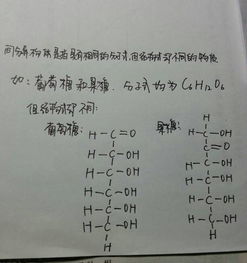 同分异构体是指具有相同的分子式,但结构式却不同的物质
如:葡萄糖和果糖,分子式均为C6H12O6
但结构式却不同:
葡萄糖: 果糖:
H H
H-C=O H-C-OH
C-OH C=O
H-C-OH C-OH
H-C-OH H-C-OH
H-C-OH H-C-OH
H-C-OH H-C-OH
H H